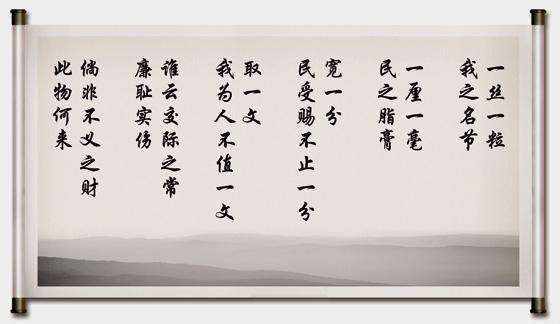 一丝一粒
我之名节
一厘一毫
民之脂膏
宽一分
民受赐不止一分
取一文
我为人不值一文
谁云交际之常
廉耻实伤
倘非不义之财
此物何来